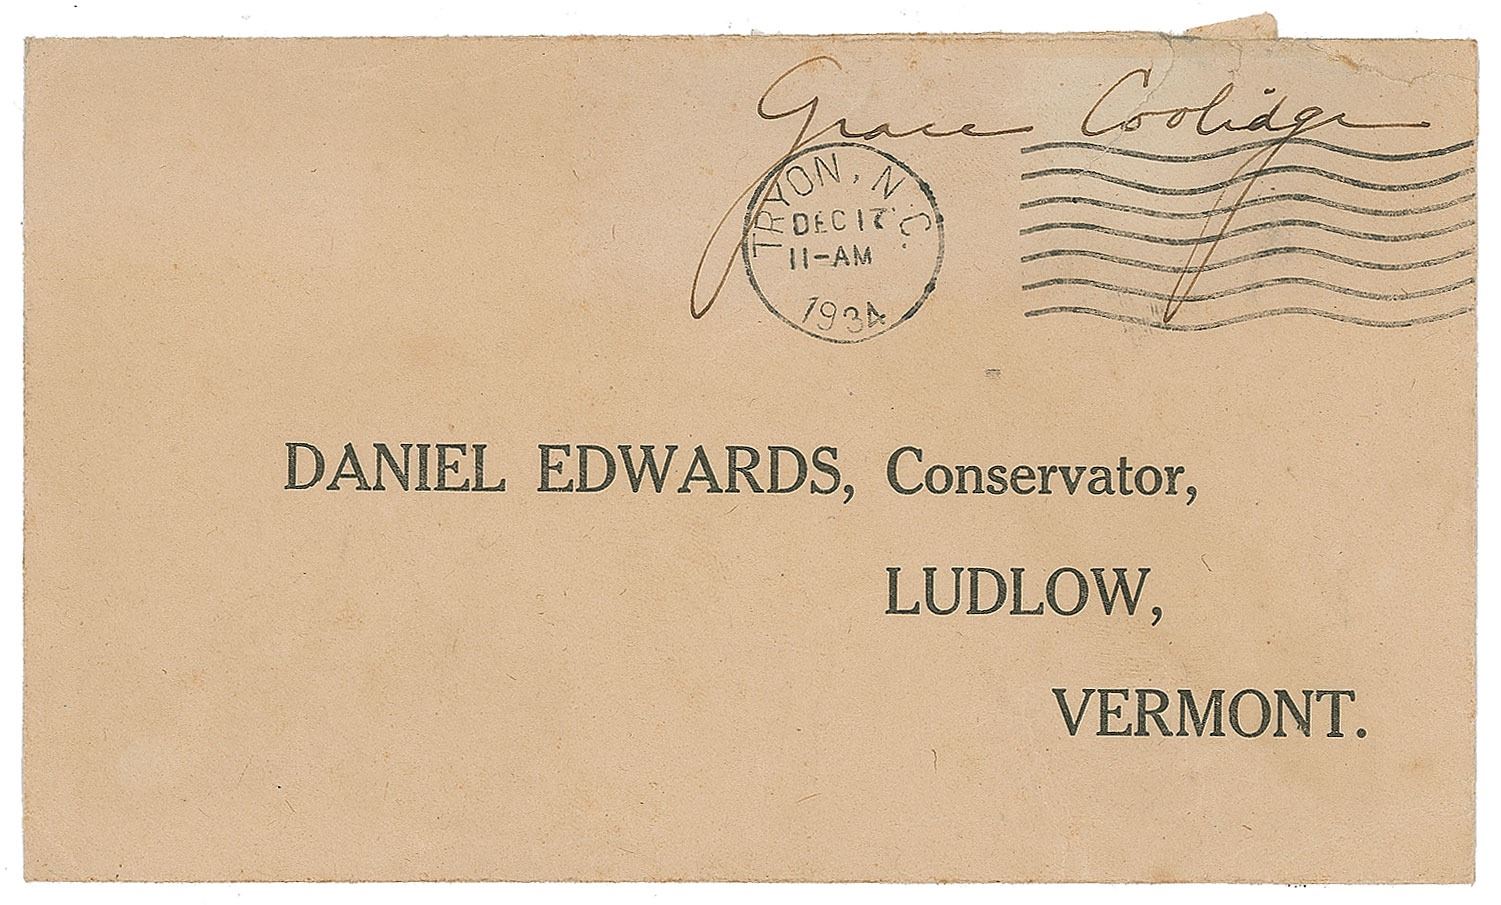 Grace Coolidge
TRYON, N.C.
DEC 17
11-AM
1934
DANIEL EDWARDS, Conservator,
LUDLOW,
VERMONT.